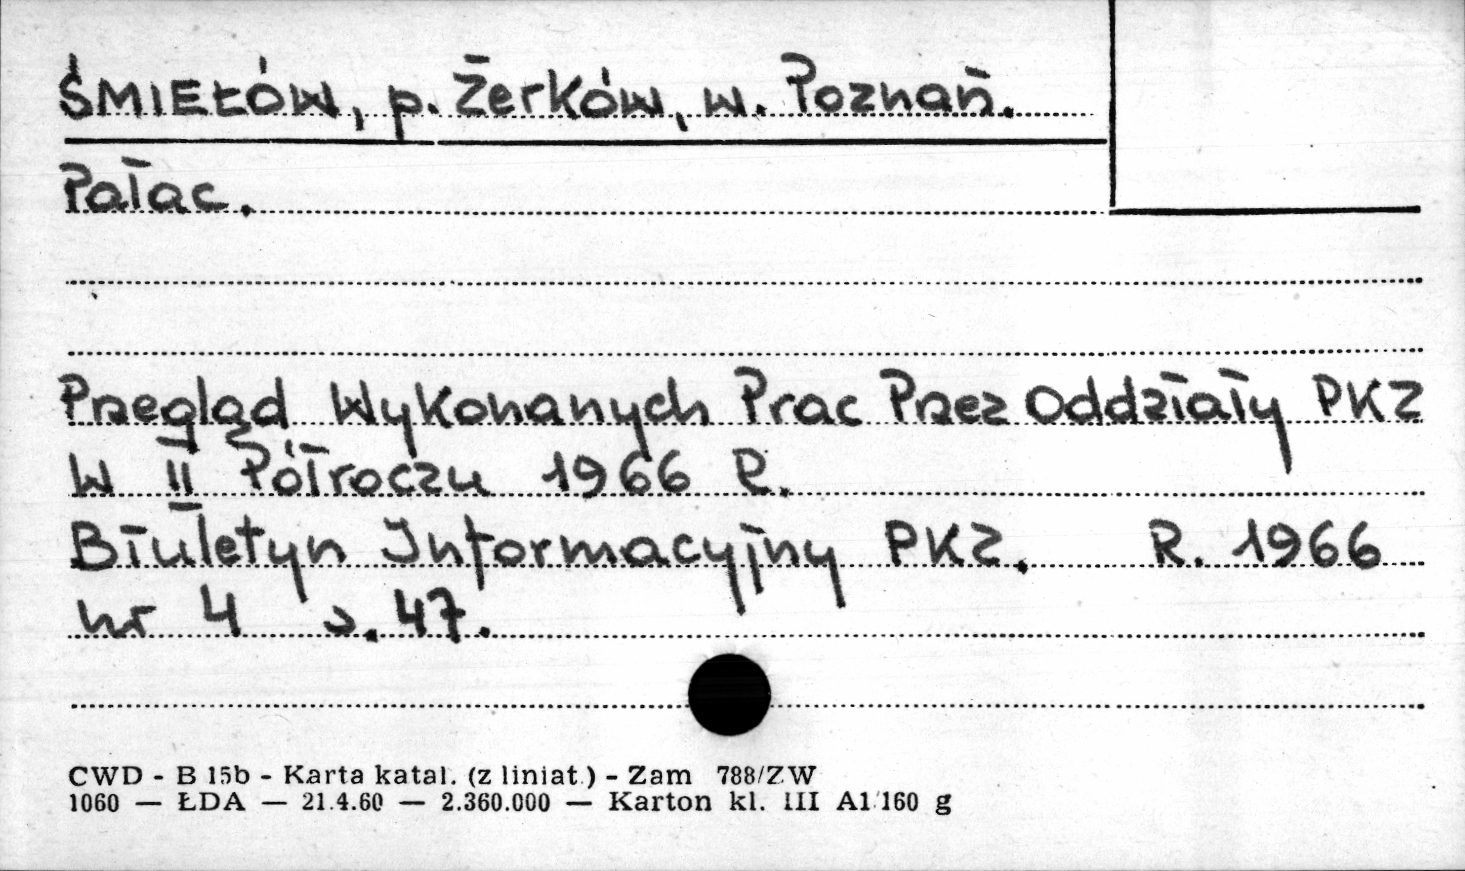 ŚMIEŁÓW, p. Żerków, w. Poznań.
Pałac.
Przegląd Wykonanych Prac Przez Oddziały PKZ
W II Półroczu 1966 R.
Biuletyn Informacyjny PKZ. R. 1966
nr 4 s. 47.
CWD - B 15b - Karta katal. (z liniat.) - Zam 788/ZW
1060 — ŁDA — 21.4.60 — 2.360.000 — Karton kl. III A1/160 g